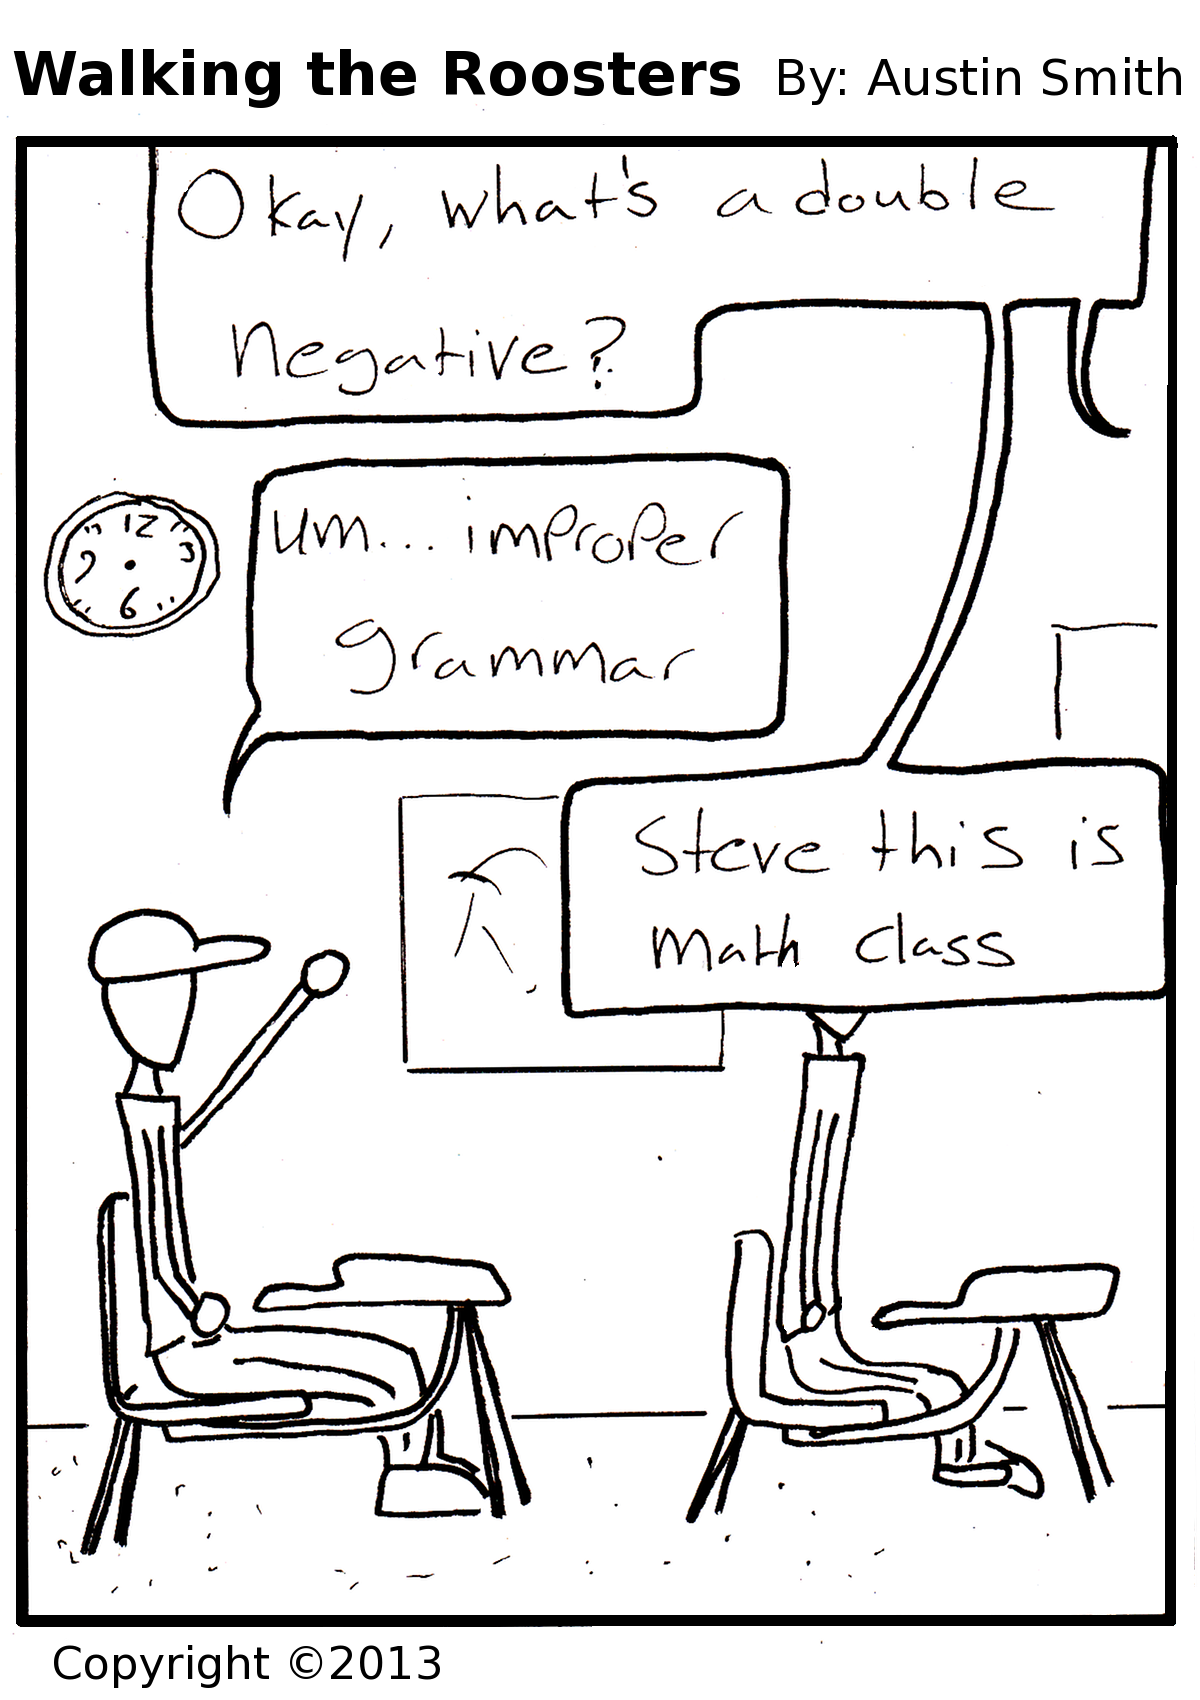 Walking the Roosters By: Austin Smith
Okay, what's a double
Negative?
12
3
9
6
um... improper
grammar
Steve this is
Math class
Copyright ©2013